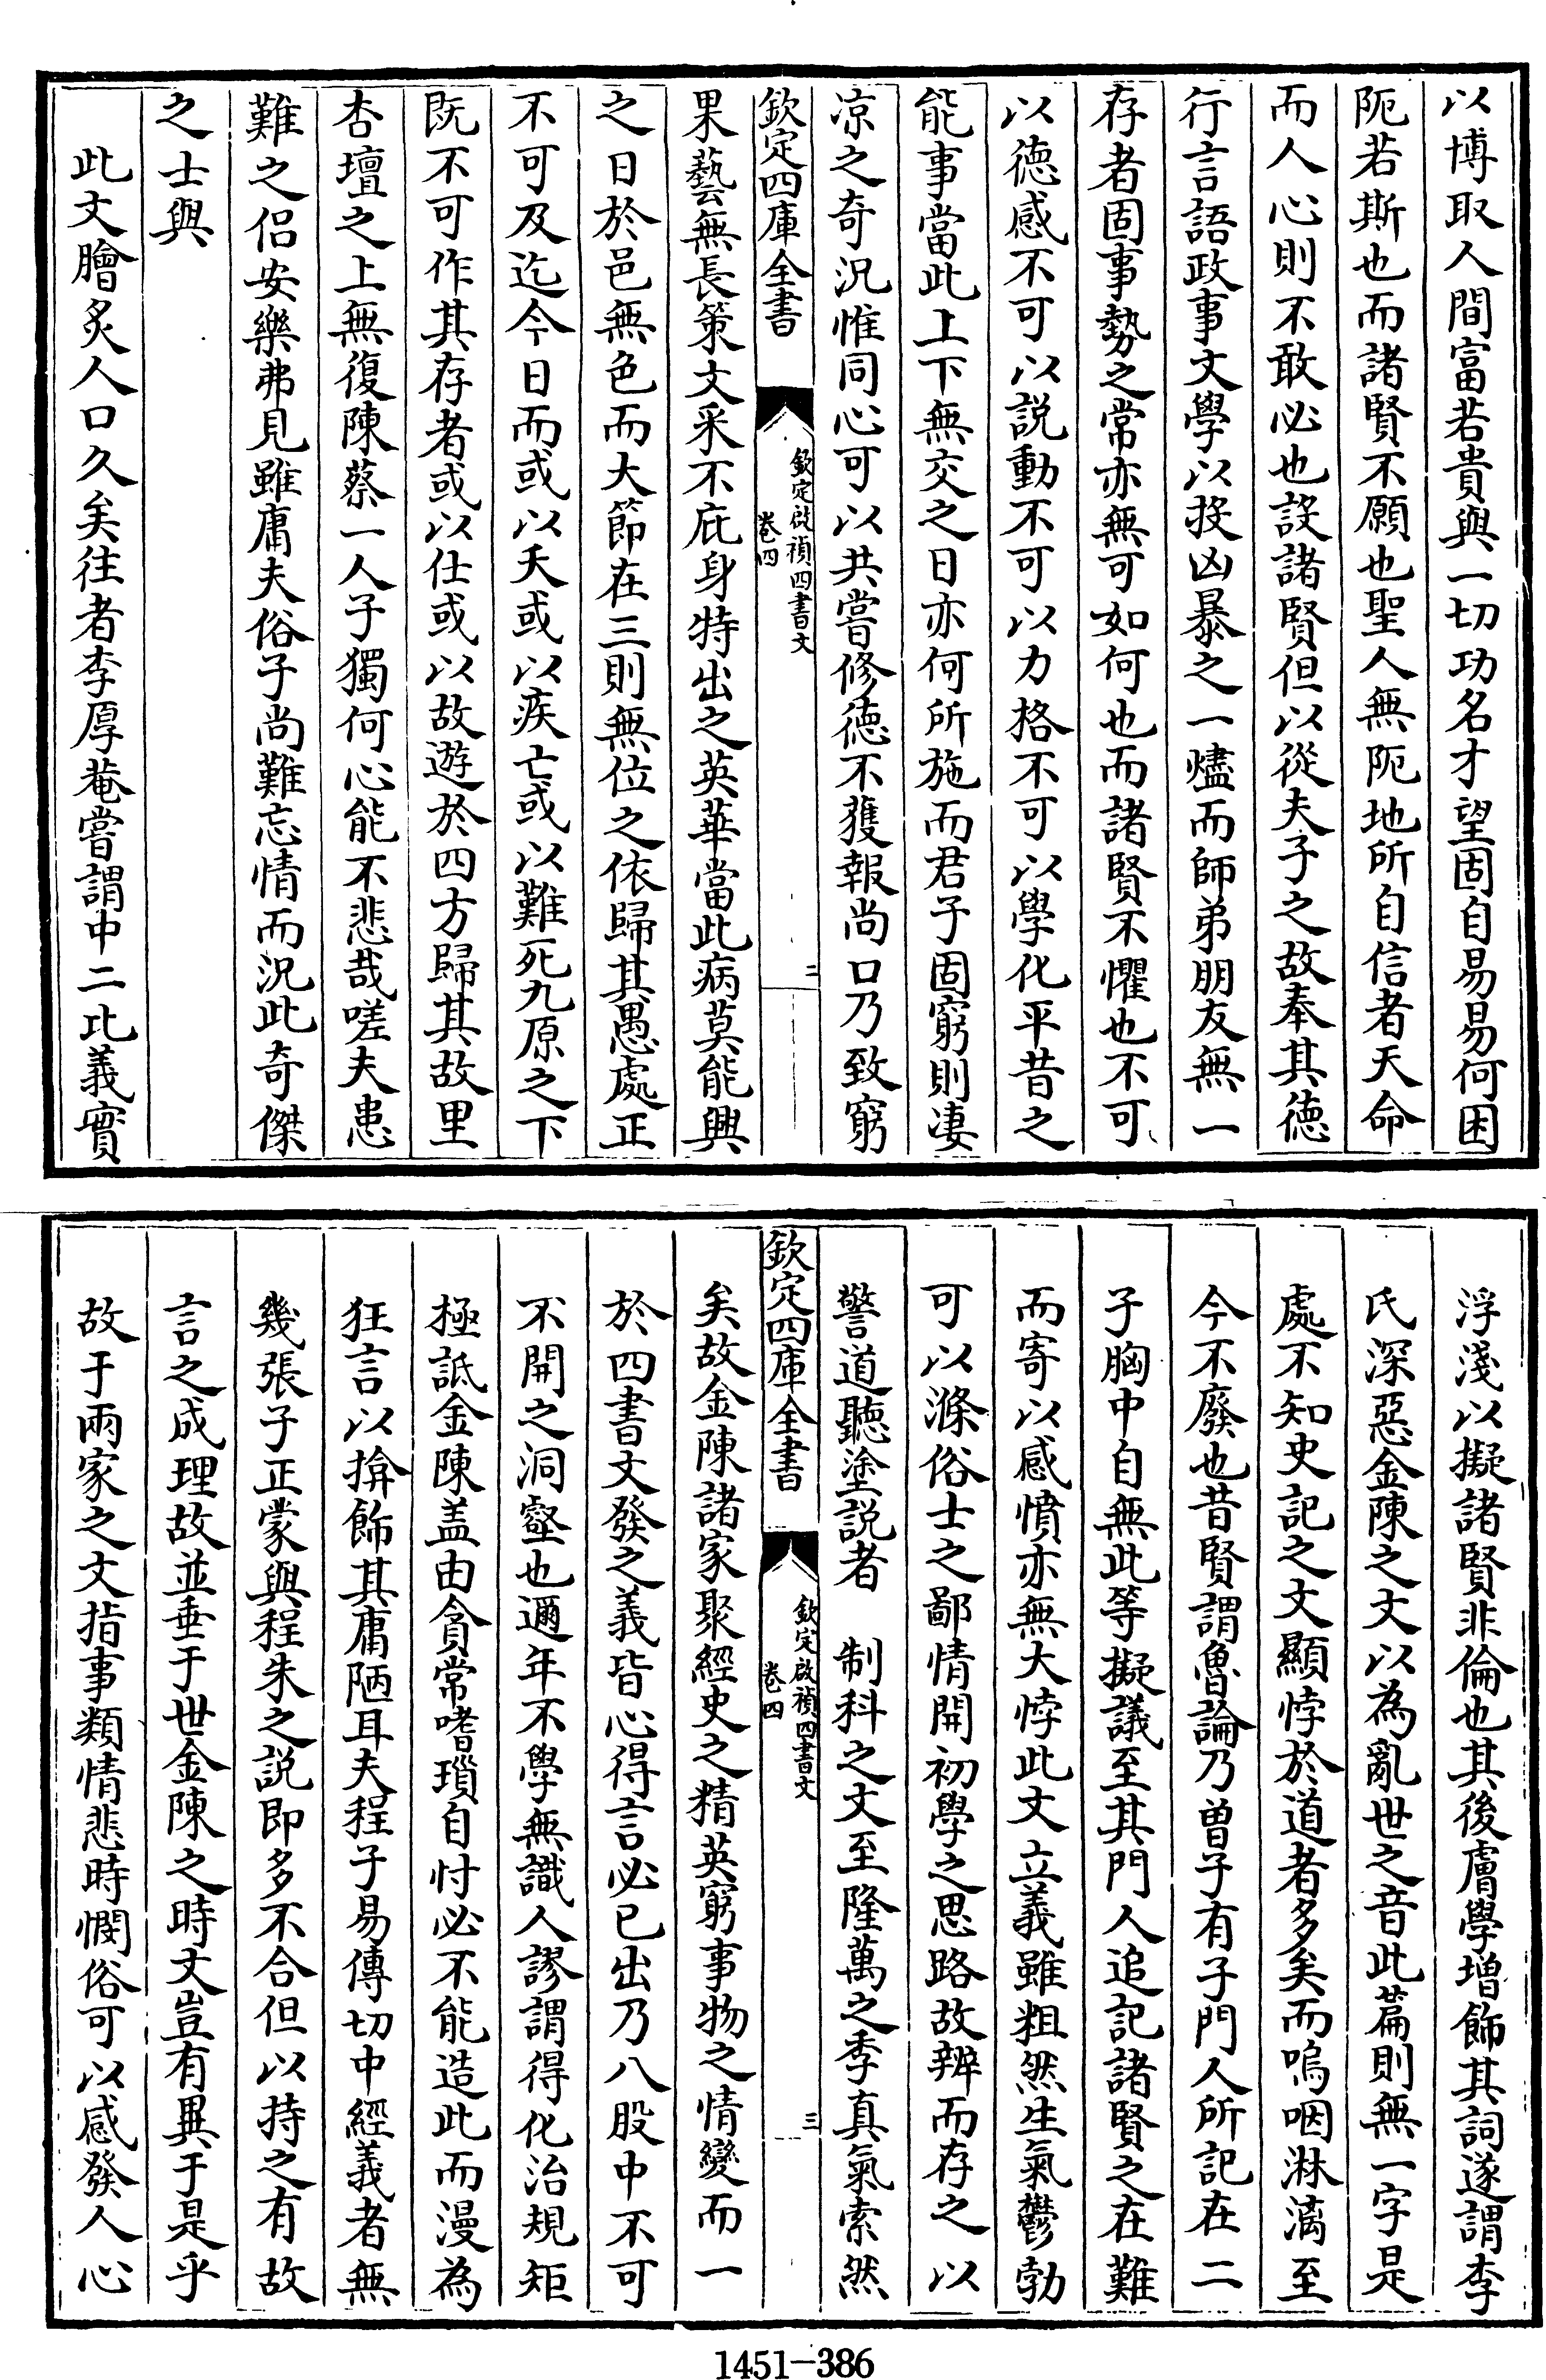 以博取人間富若貴與一切功名才望固自易易何困
阨若斯也而諸賢不願也聖人無阨地所自信者天命
而人心則不敢必也設諸賢但以從夫子之故奉其德
行言語政事文學以投凶暴之一燼而師弟朋友無一
存者固事勢之常亦無可如何也而諸賢不懼也不可
以德感不可以説動不可以力格不可以學化平昔之
能事當此上下無交之日亦何所施而君子固窮則凄
凉之奇況惟同心可以共嘗修德不獲報尚口乃致窮
欽定四庫全書
欽定啟禎四書文
卷四
二
果藝無長策文采不庇身特出之英華當此病莫能興
之日於邑無色而大節在三則無位之依歸其愚處正
不可及迄今日而或以夭或以疾亡或以難死九原之下
既不可作其存者或以仕或以故遊於四方歸其故里
杏壇之上無復陳蔡一人子獨何心能不悲哉嗟夫患
難之侣安樂弗見雖庸夫俗子尚難忘情而況此奇傑
之士與
此文膾炙人口久矣往者李厚菴嘗謂中二比義實
浮淺以擬諸賢非倫也其後膚學增飾其詞遂謂李
氏深惡金陳之文以為亂世之音此篇則無一字是
處不知史記之文顯悖於道者多矣而嗚咽淋漓至
今不廢也昔賢謂魯論乃曽子有子門人所記在二
子胸中自無此等擬議至其門人追記諸賢之在難
而寄以感憤亦無大悖此文立義雖粗然生氣鬱勃
可以滌俗士之鄙情開初學之思路故辨而存之以
警道聽塗説者　制科之文至隆萬之季真氣索然
欽定四庫全書
欽定啟禎四書文
卷四
三
矣故金陳諸家聚經史之精英窮事物之情變而一
於四書文發之義皆心得言必已出乃八股中不可
不開之洞壑也邇年不學無識人謬謂得化治規矩
極詆金陳盖由貪常嗜瑣自忖必不能造此而漫為
狂言以揜飾其庸陋耳夫程子易傳切中經義者無
幾張子正蒙與程朱之説即多不合但以持之有故
言之成理故並垂于世金陳之時文豈有異于是乎
故于兩家之文指事類情悲時憫俗可以感發人心
1451-386